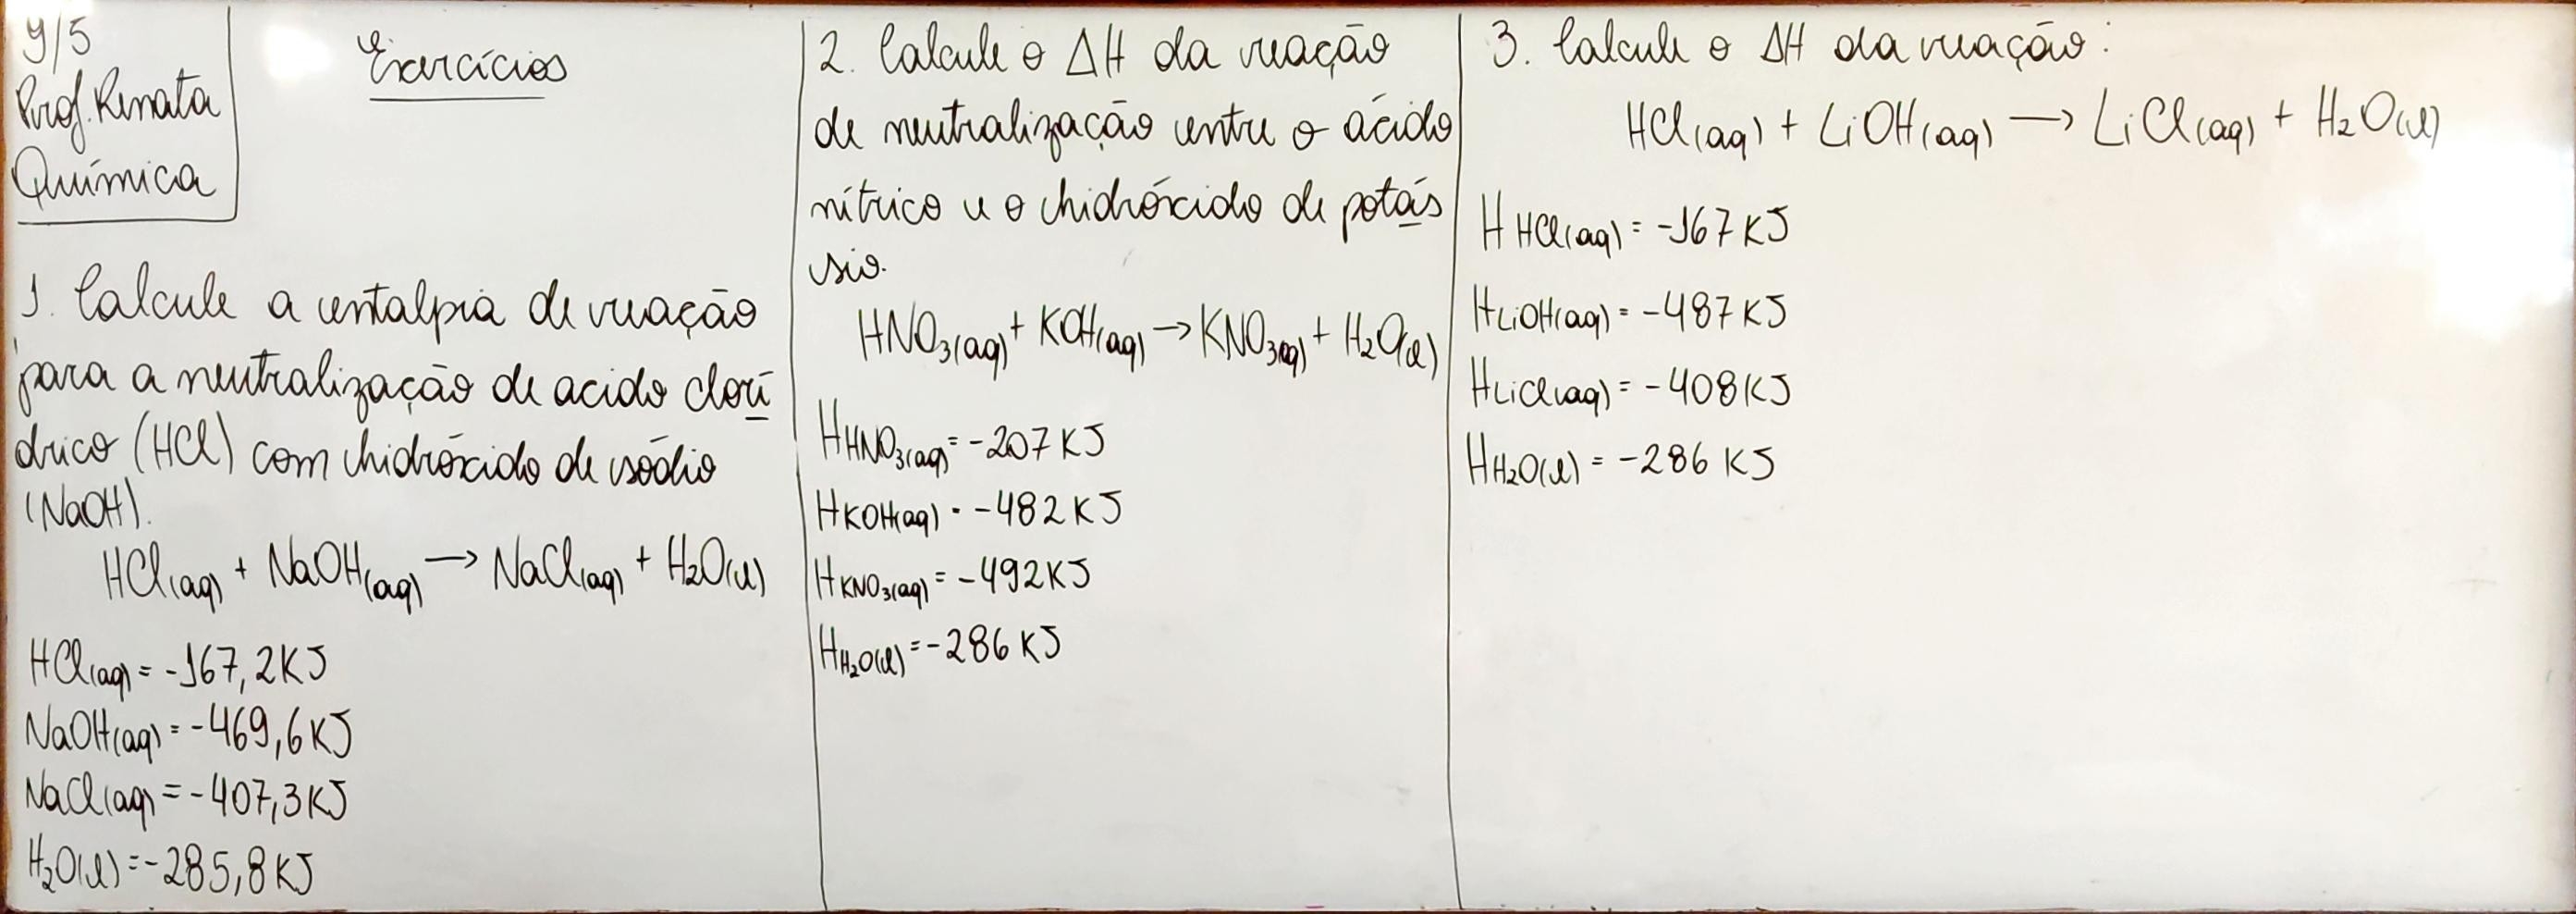 9/5
Prof. Renata
Química
Exercícios
1. Calcule a entalpia de reação
para a neutralização de acido clorí
drico (HCl) com hidróxido de sódio
(NaOH).
HCl(aq) + NaOH(aq) → NaCl(aq) + H₂O(l)
HCl(aq) = -167,2KJ
NaOH(aq) = -469,6KJ
NaCl(aq) = -407,3KJ
H₂O(l) = -285,8KJ
2. Calcule o ΔH da reação
de neutralização entre o ácido
nítrico e o hidróxido de potás
sio.
HNO₃(aq) + KOH(aq) → KNO₃(aq) + H₂O(l)
H HNO₃(aq) = -207 KJ
H KOH(aq) = -482 KJ
H KNO₃(aq) = -492KJ
H H₂O(l) = -286 KJ
3. Calcule o ΔH da reação:
HCl(aq) + LiOH(aq) → LiCl(aq) + H₂O(l)
H HCl(aq) = -167 KJ
H LiOH(aq) = -487 KJ
H LiCl(aq) = -408KJ
H H₂O(l) = -286 KJ